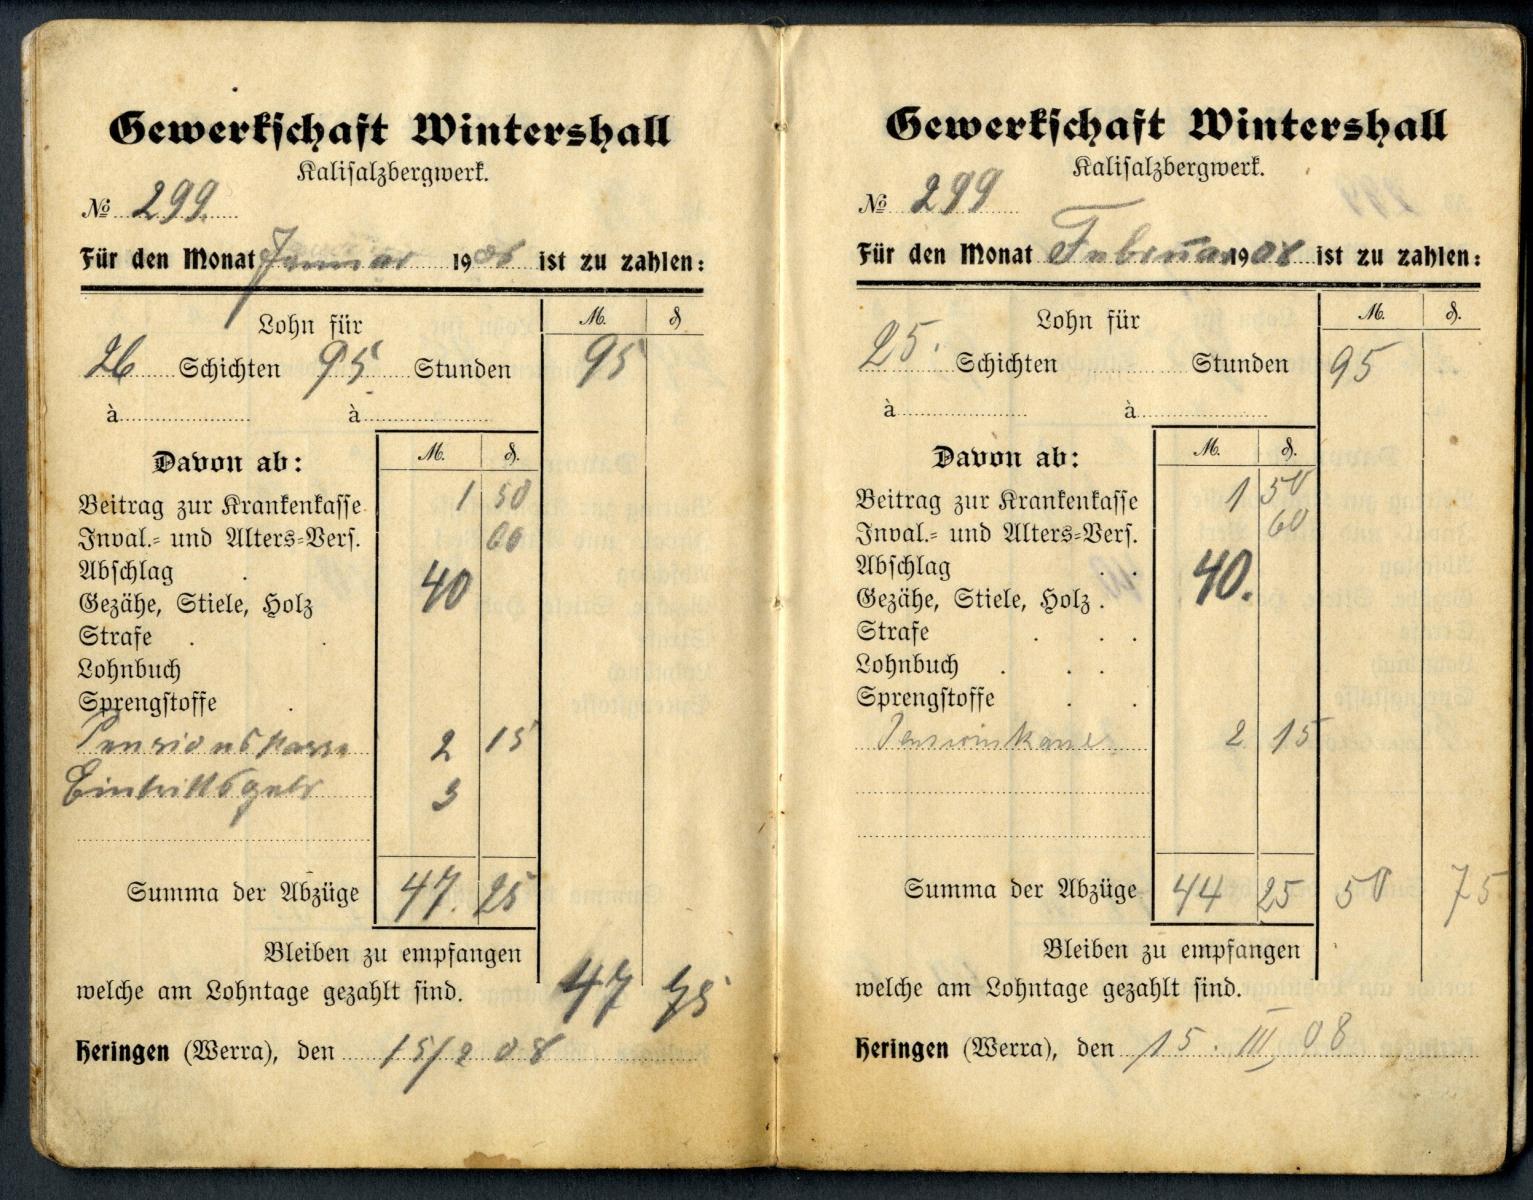 Gewerkschaft Wintershall
Kalisalzbergwerk.
№ 299.
Für den Monat Januar 1908 ist zu zahlen:
M. ₰
Lohn für
26 Schichten 95 Stunden 95
à à
M. ₰.
Davon ab:
Beitrag zur Krankenkasse 1 50
Inval.- und Alters-Vers. 60
Abschlag . 40
Gezähe, Stiele, Holz
Strafe . .
Lohnbuch
Sprengstoffe .
Pensionskasse 2 15
Eintrittsgeld 3
Summa der Abzüge 47. 25
Bleiben zu empfangen
welche am Lohntage gezahlt sind. 47 75
Heringen (Werra), den 15/2 08
Gewerkschaft Wintershall
Kalisalzbergwerk.
№ 299
Für den Monat Februar 1908 ist zu zahlen:
M. ₰.
Lohn für
25. Schichten Stunden 95
à à
M. ₰.
Davon ab:
Beitrag zur Krankenkasse 1 50
Inval.- und Alters-Vers. 60
Abschlag . . 40.
Gezähe, Stiele, Holz .
Strafe . . .
Lohnbuch . . .
Sprengstoffe . .
Pensionskasse 2 15
Summa der Abzüge 44 25 50 75
Bleiben zu empfangen
welche am Lohntage gezahlt sind.
Heringen (Werra), den 15. III, 08